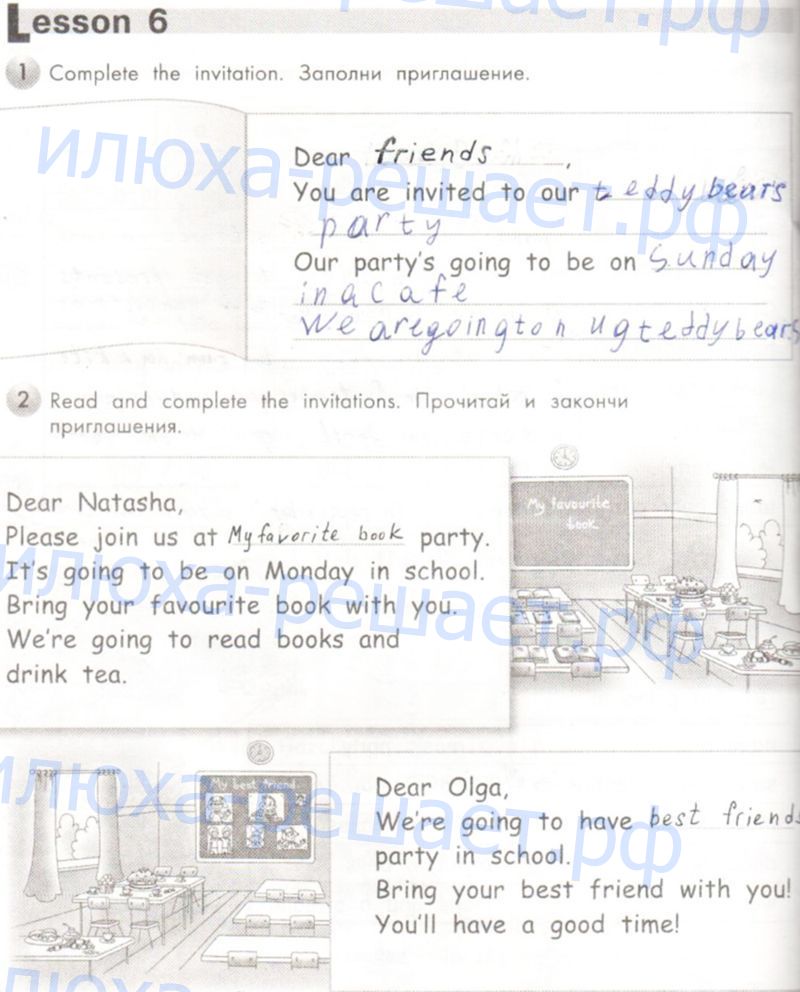 Lesson 6
1 Complete the invitation. Заполни приглашение.
Dear friends,
You are invited to our teddy bears
party
Our party's going to be on Sunday
in a cafe
We are going to hug teddy bears
2 Read and complete the invitations. Прочитай и закончи
приглашения.
Dear Natasha,
Please join us at My favorite book party.
It's going to be on Monday in school.
Bring your favourite book with you.
We're going to read books and
drink tea.
My favourite
book
My best friend
Dear Olga,
We're going to have best friends
party in school.
Bring your best friend with you!
You'll have a good time!
илюха-решает.рф
илюха-решает.рф
илюха-решает.рф